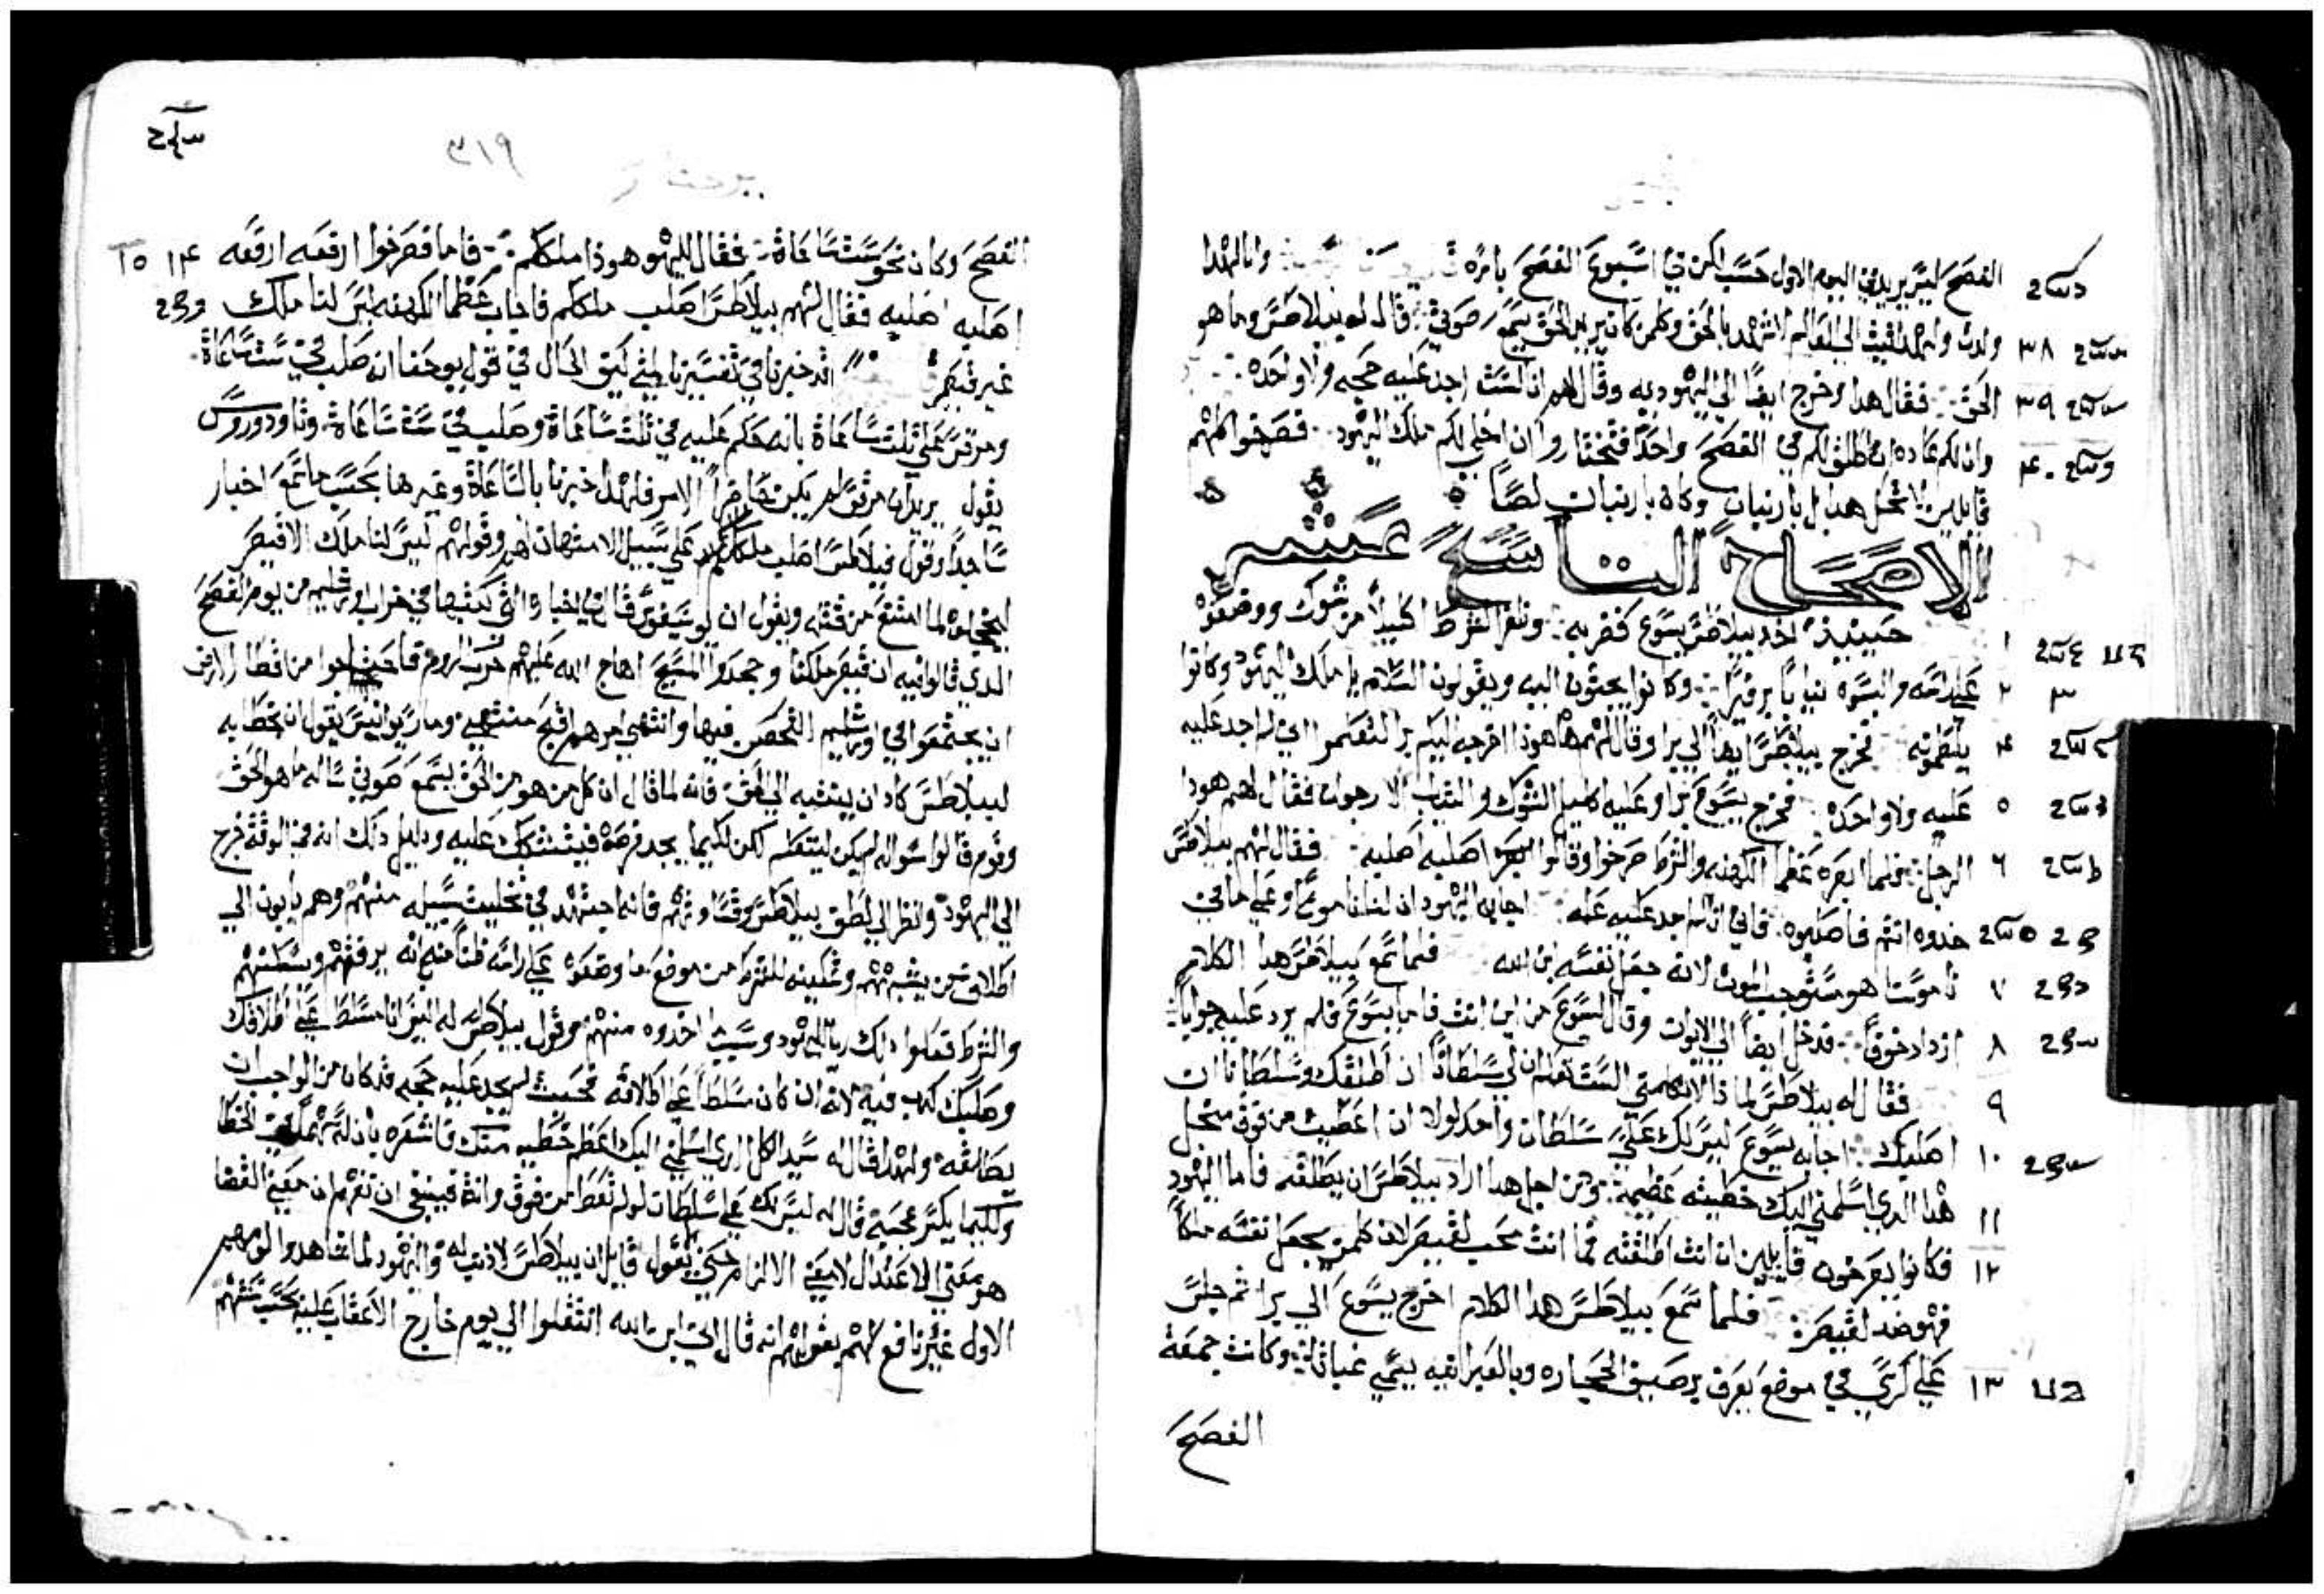 الفصح ليس يريد في اليوم الاول حسب لكن في اسبوع الفصح باسره وانا لهدا
ولدت ولهدا اقبلت الى العالم لاشهد بالحق وكلمن كان يريد الحق يسمع صوتي قال له بيلاطس وما هو
٣٨
الحق فقال هدا وخرج ايضا الى اليهوديه وقال لهم اني لست اجد عليه حجه ولا واحده
٣٩
وان لكم عاده ان اطلق لكم في الفصح واحدا فتختاروا ان اخلي لكم ملك اليهود فصرخوا كلهم
٤٠
قايلين لا تخل هدا بل بارنبان وكان بارنبان لصا
الاصحاح التاسع عشر
١
حينيذ اخد بيلاطس يسوع فضربه وظفر الشرط اكليلا من شوك ووضعوه
٢ ٣
على راسه والبسوه ثيابا برفيرا وكانوا يجيون اليه ويقولون السلام يا ملك اليهود وكانوا
٤
يلطمونه فخرج بيلاطس ايضا الى برا وقال لهم هاهوذا اخرجه اليكم برا لتعلموا اني لم اجد عليه
٥
عليه ولا واحده فخرج يسوع برا وعليه اكليل الشوك والثياب الارجوان فقال لهم هودا
٦
الرجل فلما ابصره عظما الكهنه والشرط صرخوا وقالوا اصلبه اصلبه فقال لهم بيلاطس
خدوه انتم فاصلبوه فاني انا لم اجد عليه عله اجابه اليهود ان لنا ناموسا وعلى ما في
٧
ناموسنا هو مستوجب الموت لانه جعل نفسه ابن الله فلما سمع بيلاطس هدا الكلام
٨
ازداد خوفا فدخل ايضا الى الايوان وقال ليسوع من اين انت فاما يسوع فلم يرد عليه جوابا
٩
فقال له بيلاطس لما ذا لا تكلمني الست تعلم ان لي سلطانا ان اطلقك وسلطانا ان
١٠
اصلبك اجابه يسوع ليس لك علي سلطان واحد لولا ان اعطيت من فوق من اجل
١١
هدا الدي اسلمني اليك خطيته عظيمة ومن اجل هدا اراد بيلاطس ان يطلقه فاما اليهود
١٢
فكانوا يصرخون قايلين ان انت اطلقته فما انت محب لقيصر لان كلمن يجعل نفسه ملكا
فهو ضد لقيصر فلما سمع بيلاطس هدا الكلام اخرج يسوع الى برا ثم جلس
١٣
على كرسي في موضع يعرف برصيف الحجاره وبالعبرانيه يسمى غباثا وكانت جمعة
الفصح
٣١٩
الفصح وكان نحو ست ساعاة فقال لليهود هوذا ملككم فاما فصرخوا ارفعه ارفعه
١٤ ١٥
اصلبه اصلبه فقال لهم بيلاطس اصلب ملككم فاجاب عظما الكهنه ليس لنا ملك
غير قيصر قد خبرنا في تفسيرنا لمتى كيف الحال في قول يوحنا انه صلب في ست ساعاة
ومرقس على ثلت ساعاة بانه حكم عليه في ثلت ساعاة وصلب في ست ساعاة وتاودوروس
يقول يريد ان مرقس لم يكن حاضرا الامر فلهدا خبرنا بالساعاة وغيرها بحسب ما سمع اخبار
ساجدا وقول فيلاطس اصلب ملككم على سبيل الامتهان لهم وقولهم ليس لنا ملك الا قيصر
ليخجلوه لما امتنع من قتله ويقول ان يوسيفوس قال في اخباره التي كتبها في خراب اورشليم من يوم الفصح
الدي قالوا فيه ان قيصر ملكنا وجحدوا المسيح اهاج الله عليهم حرب الروم من اقطار الارض
ان يجتمعوا في اورشليم التحصن فيها وانتهى امرهم اقبح منتهى ومار يوانيس يقول ان خطابه
لبيلاطس كاد ان يبتنيه الى الحق فانه لما قال ان كل من هو من الحق يسمع صوتي ساله ما هو الحق
وقوم قالوا سواله لم يكن ليتعلم لكن لكيما يجد فرصة فيتشكك عليه ودليل دلك انه في الوقت خرج
الى اليهود وانظر الى لطف بيلاطس وقساوتهم فانه اجتهد في تخليت سبيله منهم وهم يابون الى
اطلاق من يشبههم وتمكينه للشرط من موضع ما وضعوه على راسه ظنا منه انه يرفقهم ويسكنهم
والشرط فعلوا دلك رضا لليهود وسيب اخدوه منهم وقول بيلاطس له اليس انا مسلط على اطلاقك
وصلبك كدب فيه لانه ان كان مسلطا على اطلاقه فحيث لم يجد عليه حجه فدكان من الواجب ان
يطالقه ولهدا قال له سيد الكل الدي اسلمني اليك اعظم خطيه منك فاشعره بان له سهما في الخطا
ولكيما يكسر عجبه قال له ليس لك علي سلطان لو لم تعط من فوق وانت فينبغي ان تفهم ان معنى القضا
هو بمعنى الاعتدال لا بمعنى الالزام حتى يقول قايل ان بيلاطس لا دنب له واليهود لما شاهدوا لومهم
الاول غير نافع لهم بقولهم انه قال اني ابن الله انتقلوا الى يوم خارج الاعقاب عليه بحسب سنتهم